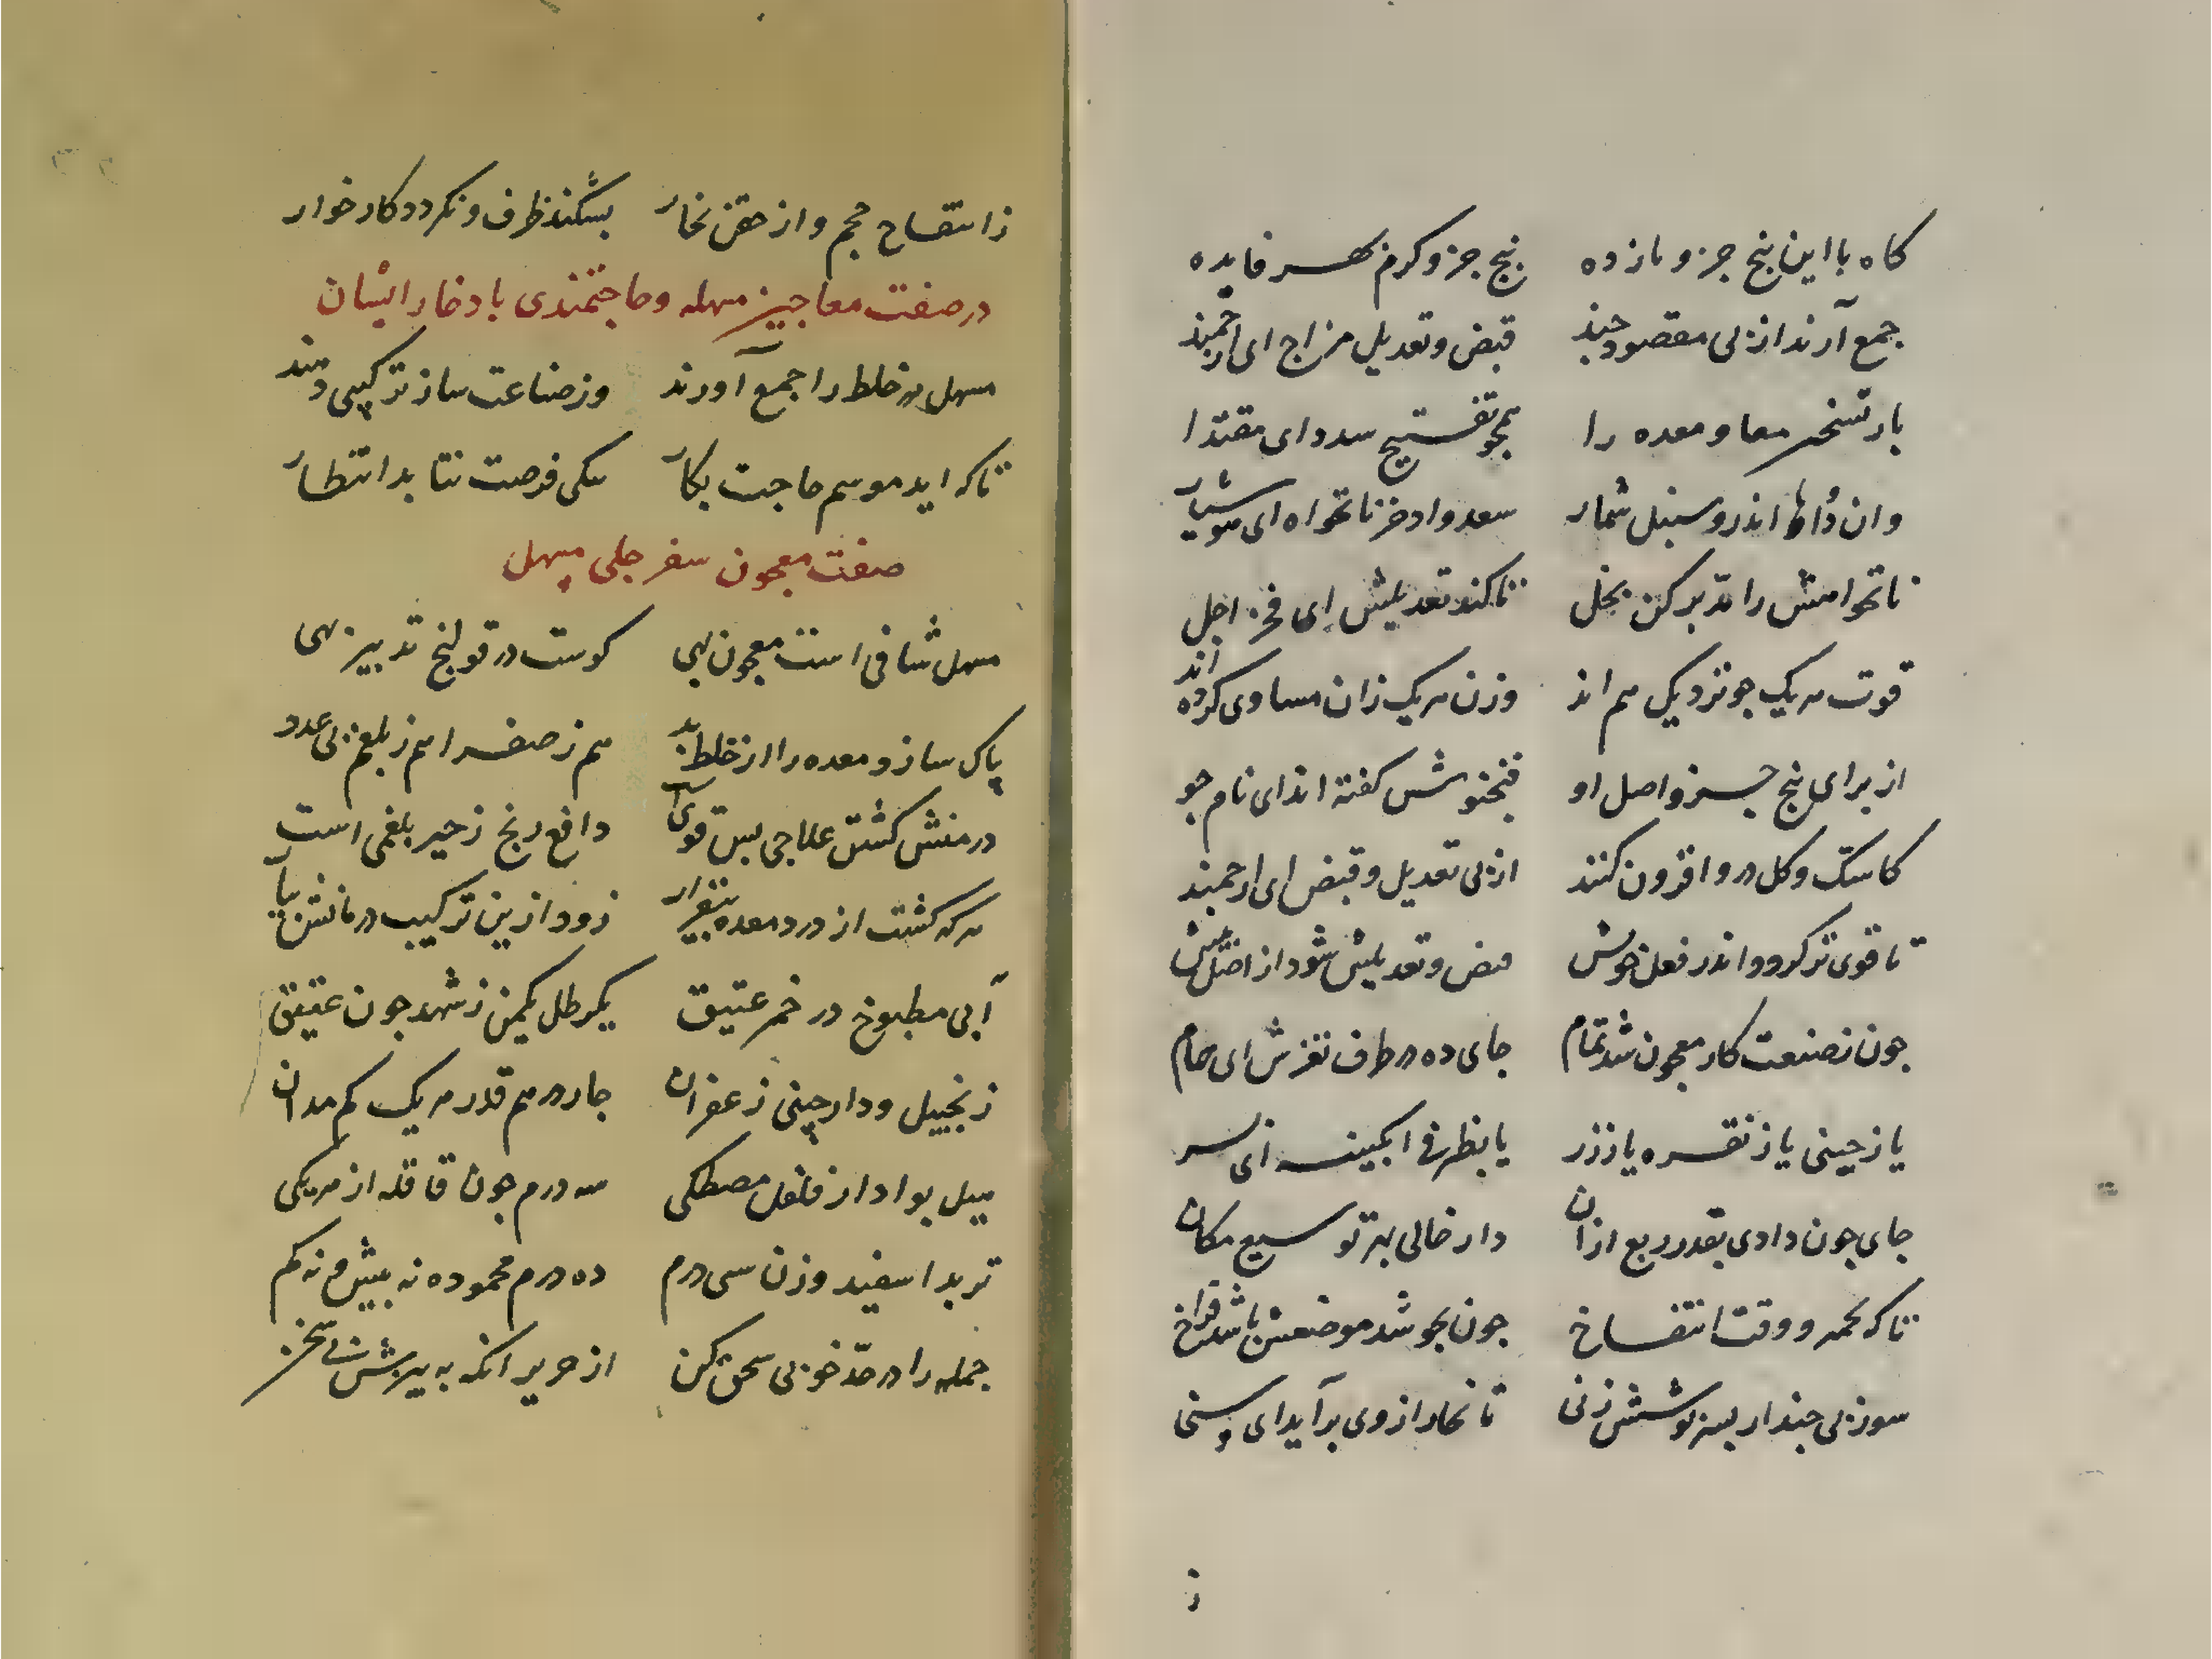 کاه با این پنج جزو بازده پنج جزو کرم بهر فایده
جمع آرند از پی مقصود چند قبض و تعدیل مزاج ای ارجمند
بار تسخیر معا و معده را همچو تفتیح سدد ای مقتدا
وان دواها اندرو سنبل شمار سعد و ادخر نانخواه ای هوشیار
نانخواهش را تدبر کن بخل تا کند تعدیلش ای فخر اجل
قوت هر یک چو نزدیک هم اند وزن هر یک زان مساوی کرده اند
از برای پنج جزو اصل او فنجنوش کفته اند ای نام جو
کاسک و کل در و افزون کنند از پی تعدیل و قبض ای ارجمند
تا قوی تر کردد اندر فعل خویش قبض و تعدیلش شود از اصل بیش
جون ز صنعت کار معجون شد تمام جای ده در ظرف نغزش ای همام
یا ز چینی یا ز نقره یا ز زر یا بظرف ابکینه ای پسر
جای چون دادی بقدر ربع ازان دار خالی بهر توسیع مکان
تا که تخمر و وقت انتفاخ جون بجوشد موضعش باشد فراخ
سوزنی چندار بسر پوشش زنی تا بخار از وی برآید ای سنی
ز
ز انتفاح حجم و از حقن بخار بشکند ظرف و نکردد کار خوار
در صفت معاجین مسهله و حاجتمندی بادخار ایشان
مسهل هر خلط را جمع آورند وز صناعت ساز ترکیبی دهند
تا که اید موسم حاجت بکار نیکی فرصت نتابد انتظار
صفت معجون سفرجلی مسهل
مسهل شافی است معجون بهی کوست در قولنج تدبیر بهی
پاک سازد معده را از خلط بد هم ز صفرا هم ز بلغم بی عدد
در منش کشتن علاجی بس قوی دافع رنج زحیر بلغمی است
هر که کشت از درد معده بیقرار زود ازین ترکیب درمانش بیار
آبی مطبوخ در خمر عتیق یکرطل یکمن ز شهد جون عقیق
زنجبیل و دارچینی زعفران جار درم قدر هر یک کم مدان
هیل بوا دار فلفل مصطکی سه درم جون قاقله از هر یکی
تربد اسفید وزن سی درم ده درم محموده نه بیش و نه کم
جمله را در حدّ خوبی سحق کن از حریر انکه به بیزش بی سخن